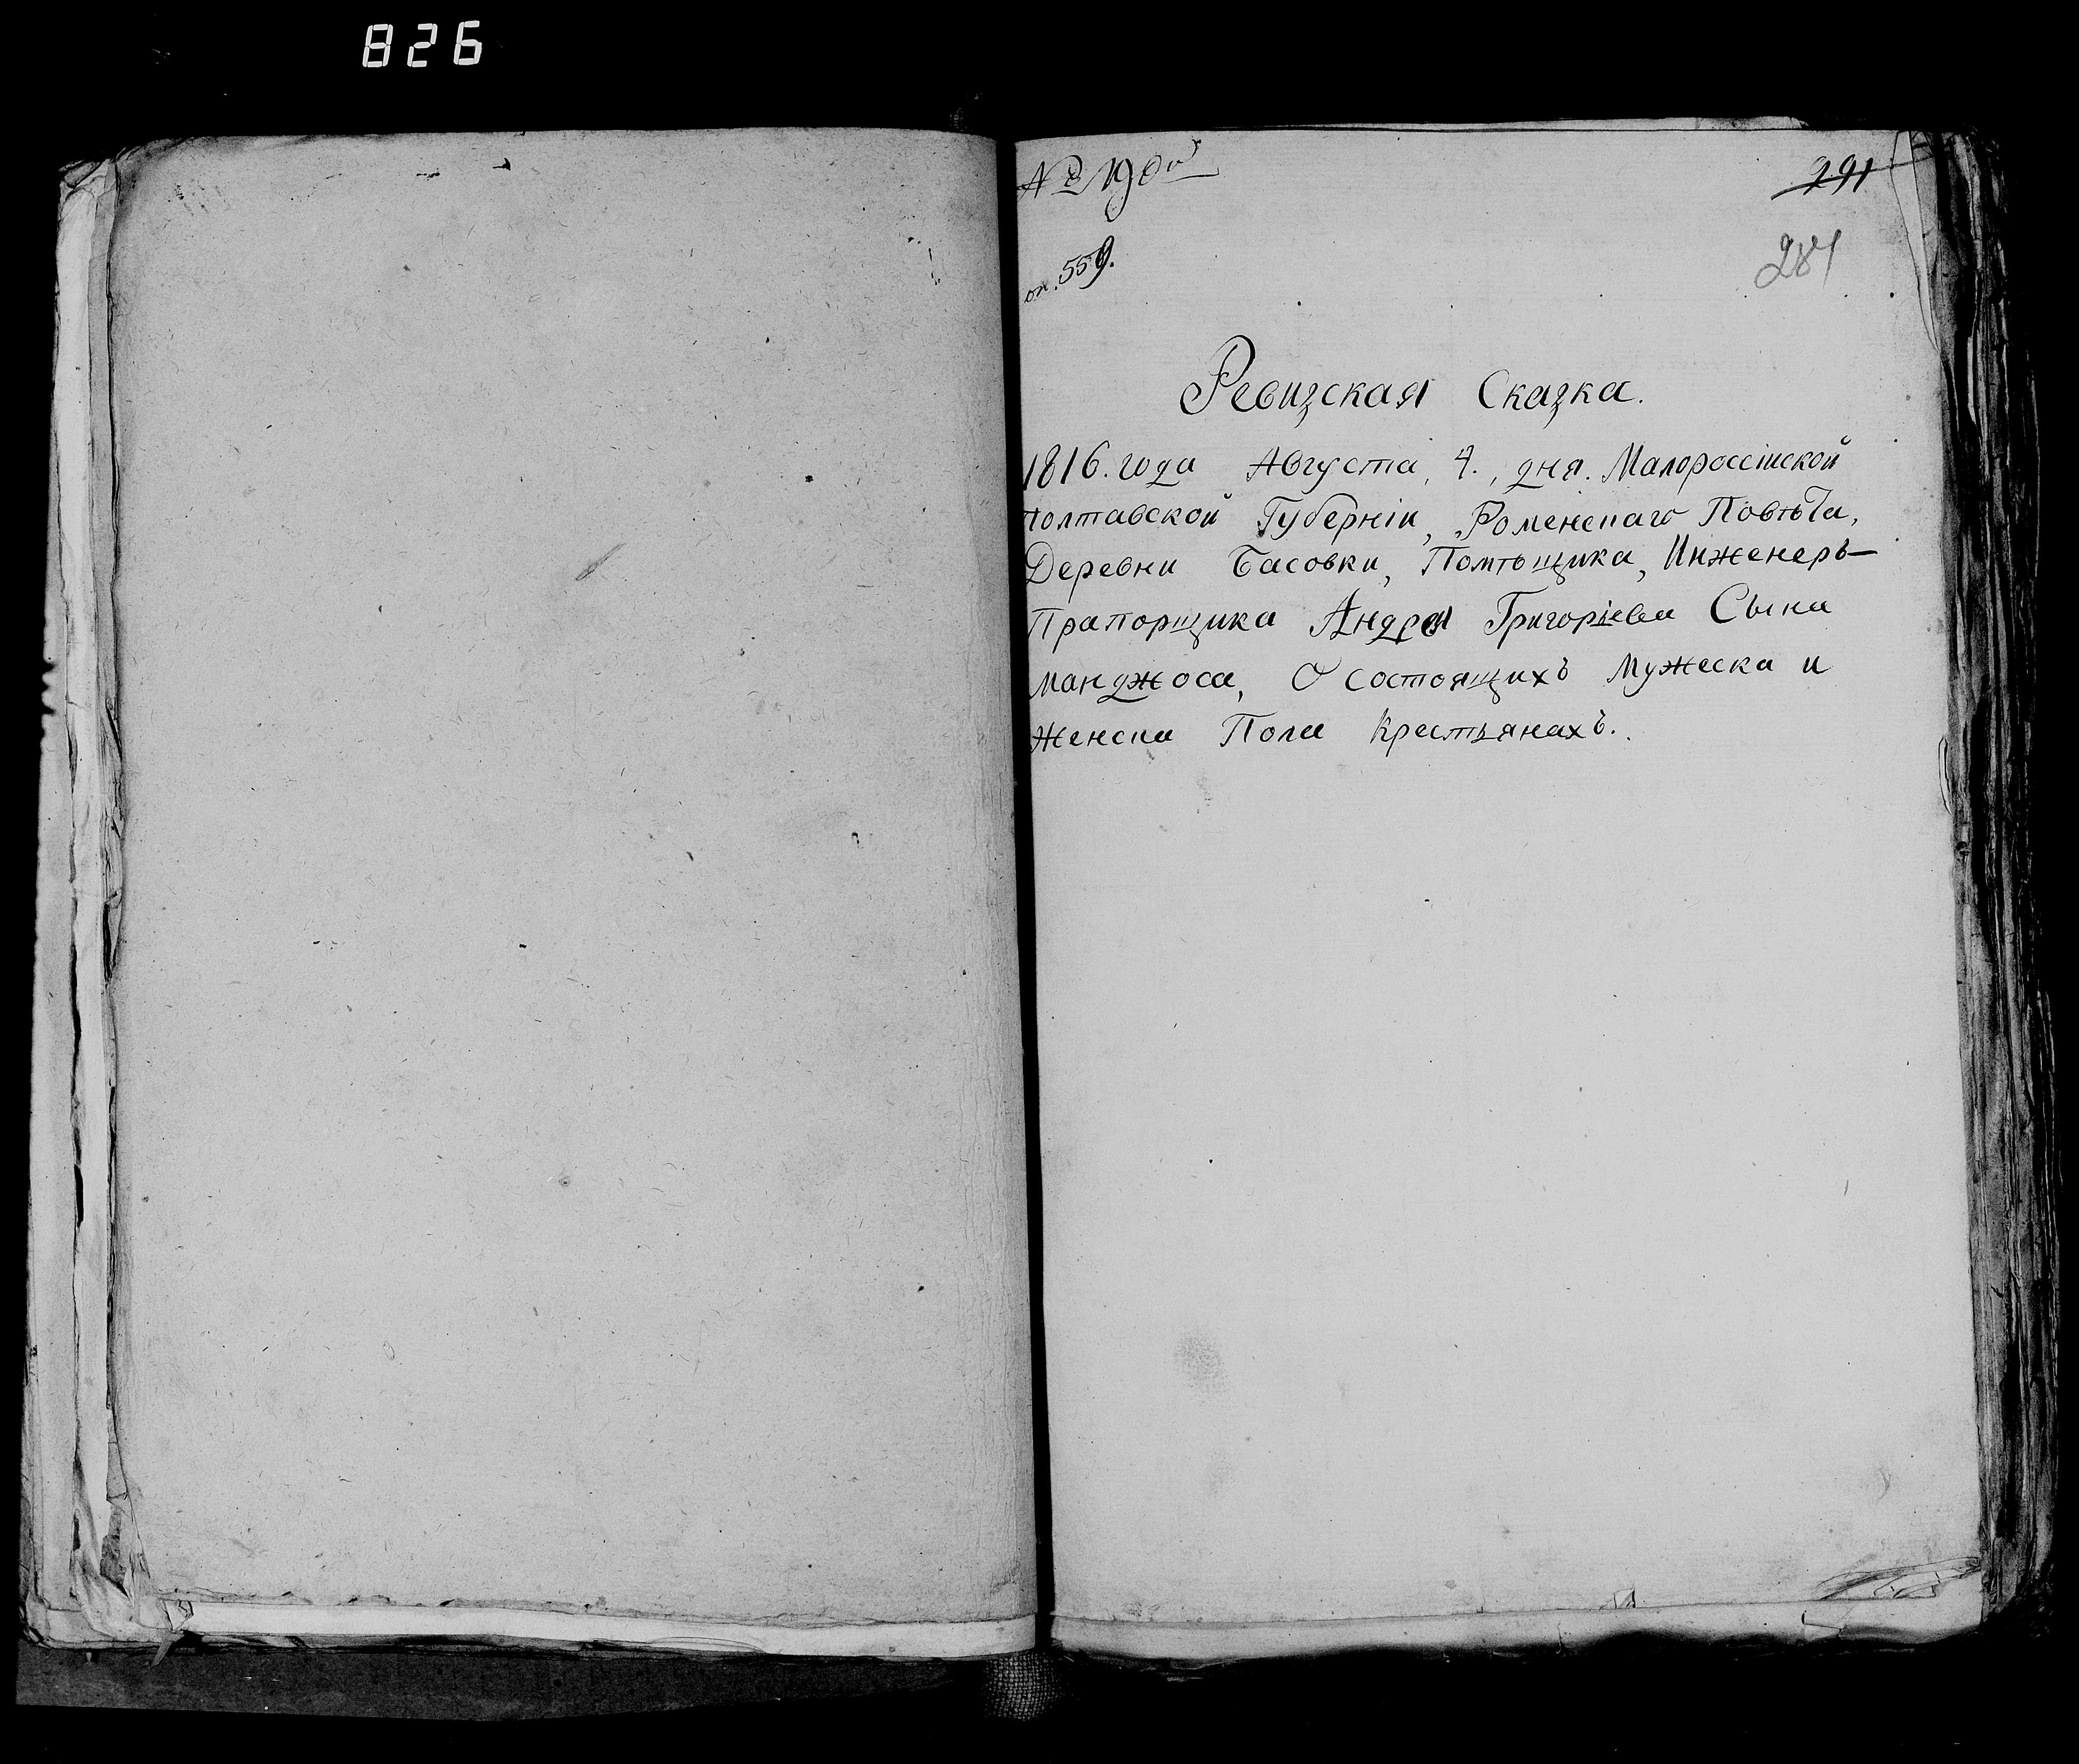 826
№ 19ой
291
оп. 559.
281
Ревизская Сказка.
1816. года Августа, 4., дня. Малороссійской
Полтавской Губерніи, Роменскаго Повѣта,
Деревни Басовки, Помѣщика, Инженеръ—
Прапорщика Андрея Григоріева Сына
Манджоса, О состоящихъ Мужеска и
Женска Пола Крестьянахъ..